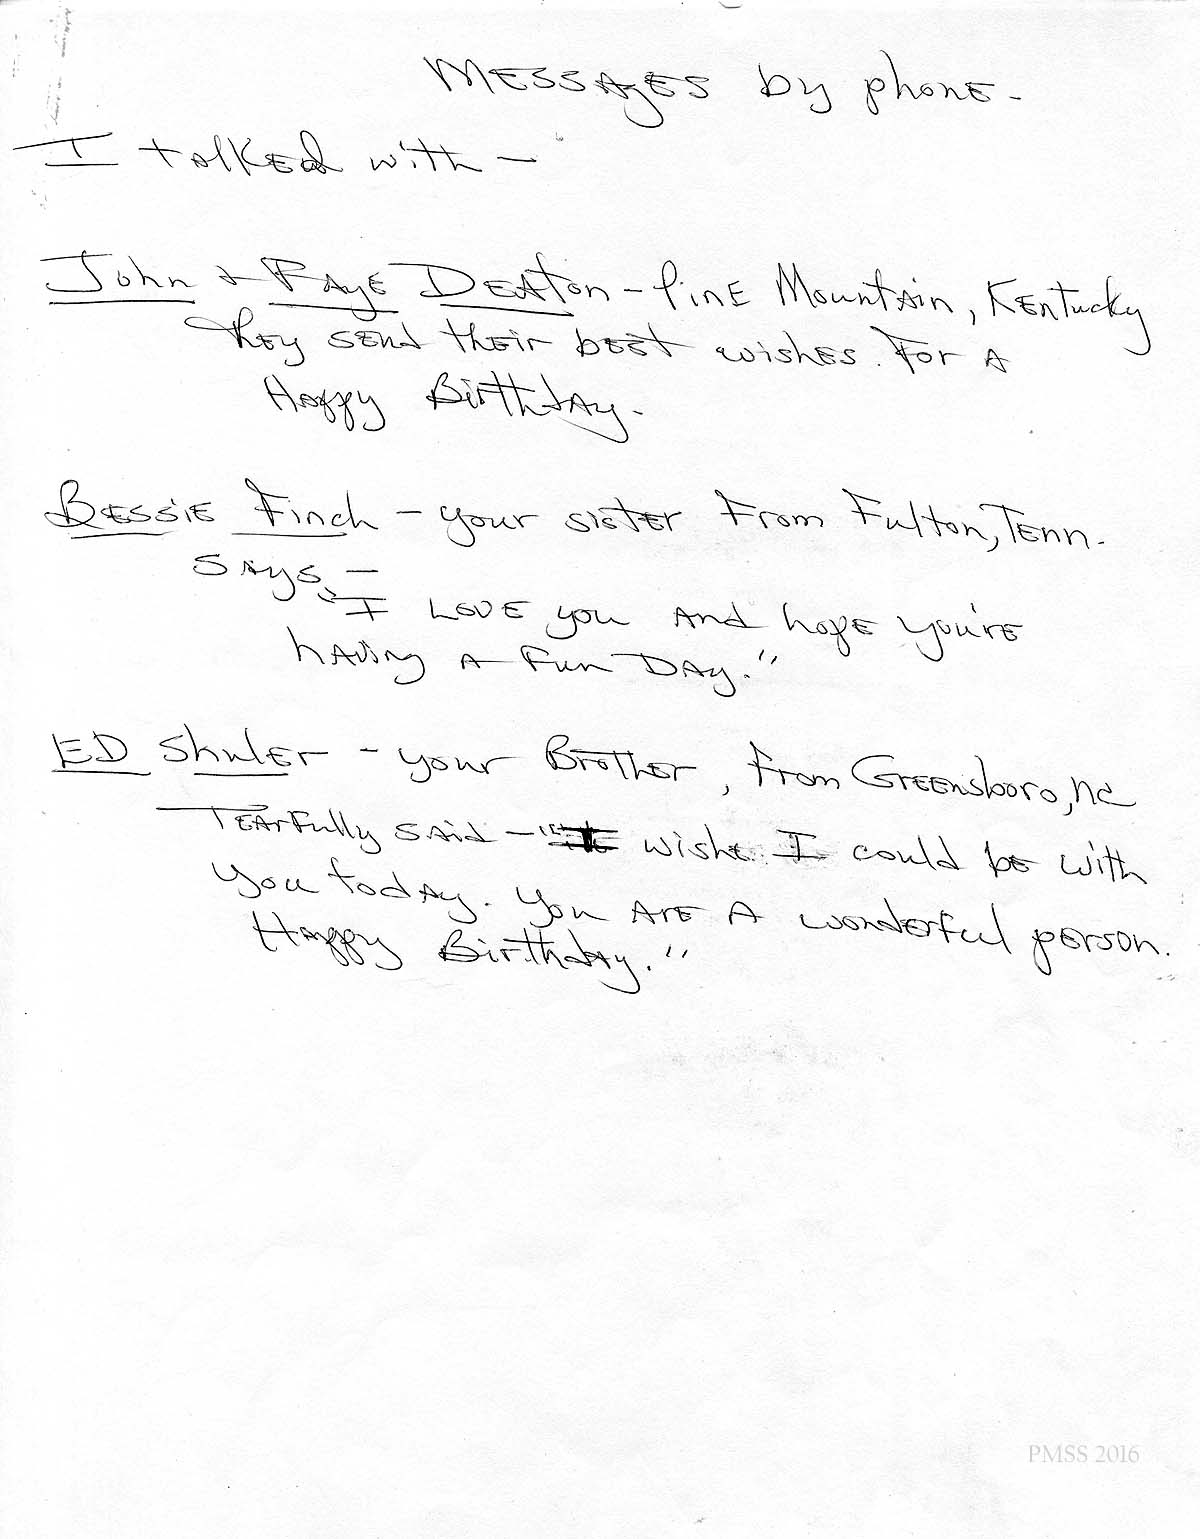 MESSAGES by phone -
I talked with -
John + FAyE DEAton - PinE Mountain, KEntucky
they send their best wishes. For A
Happy BirthdAy.
BESSiE Finch - your sister From Fulton, TEnn.
SAys, -
"I LOVE you And hopE you're
hAving A Fun DAy."
ED Shuler - your Brother, From GreenSboro, NC
TEArFully SAid - " wish I could be with
you todAy. You ArE A wonderful person.
Happy BirthdAy."
PMSS 2016